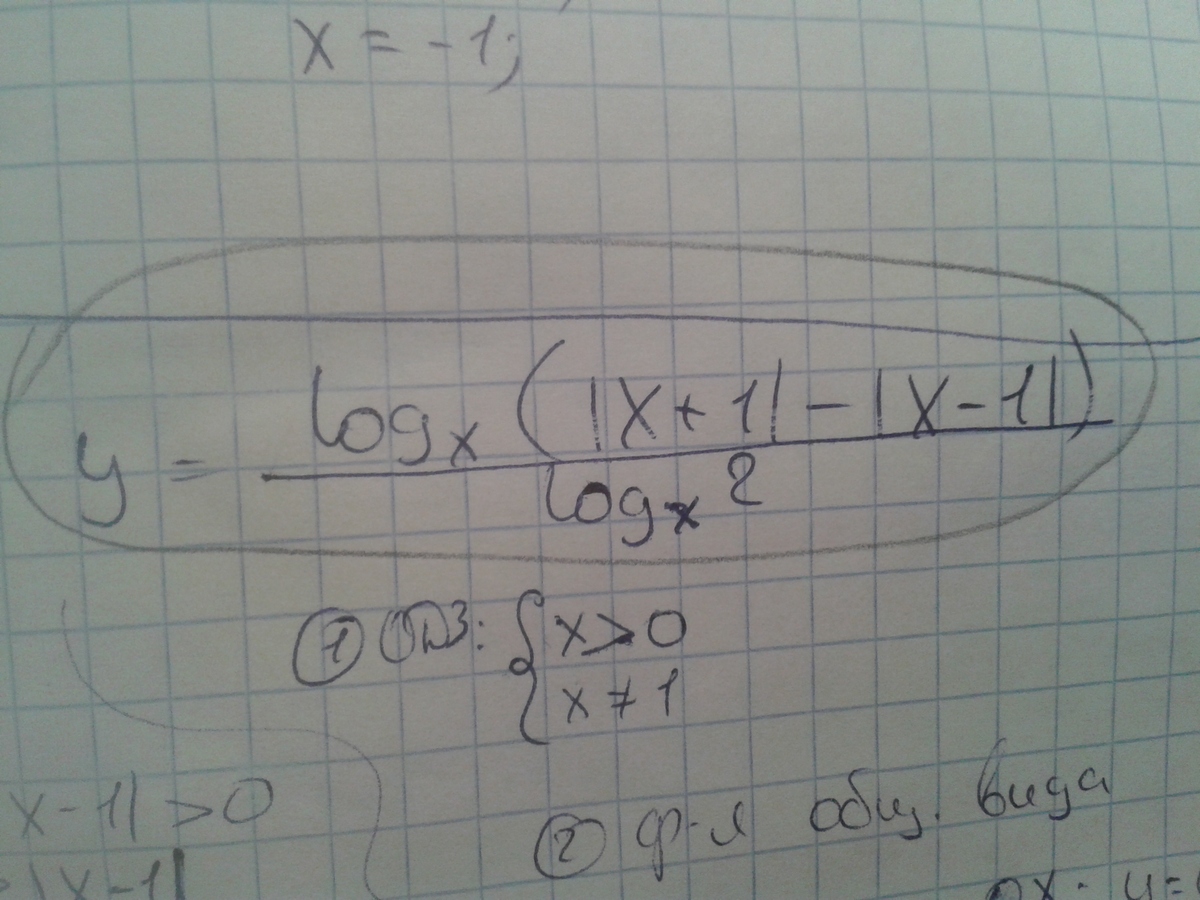 x = -1;
y = log_x (|x+1| - |x-1|) / log_x 2
① ОДЗ: { x > 0
x ≠ 1
x - 1| > 0
② ф-я общ. вида
|x-1|